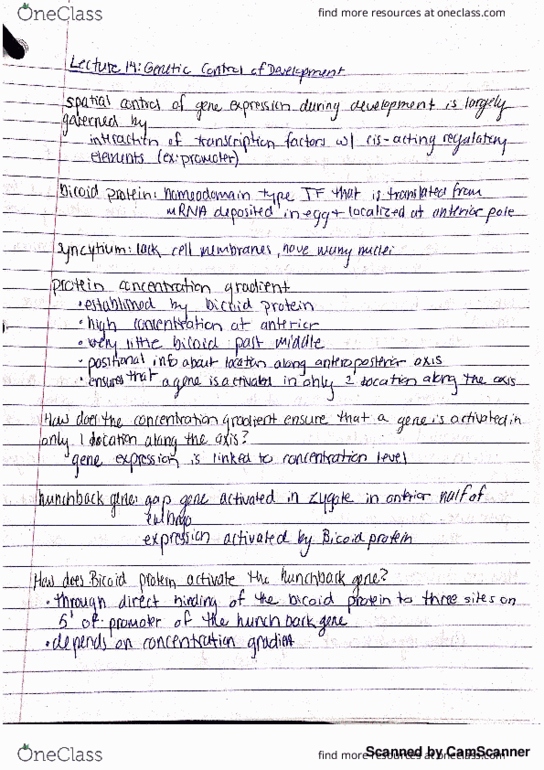 OneClass
find more resources at oneclass.com
Lecture 14: Genetic Control of Development
spatial control of gene expression during development is largely
governed by
interaction of transcription factors w/ cis-acting regulatory
elements (ex: promoter)
Bicoid protein: homeodomain type TF that is translated from
mRNA deposited in egg + localized at anterior pole
syncytium: lack cell membranes, have many nuclei
protein concentration gradient
• established by bicoid protein
• high concentration at anterior
• very little bicoid past middle
• positional info about location along anteroposterior axis
• ensures that a gene is activated in only 1 location along the axis
How does the concentration gradient ensure that a gene is activated in
only 1 location along the axis?
gene expression is linked to concentration level
hunchback gene: gap gene activated in zygote in anterior half of
embryo
expression activated by Bicoid protein
How does Bicoid protein activate the hunchback gene?
• through direct binding of the bicoid protein to three sites on
5' of promoter of the hunchback gene
• depends on concentration gradient
OneClass
find more resources at oneclass.com
Scanned by CamScanner